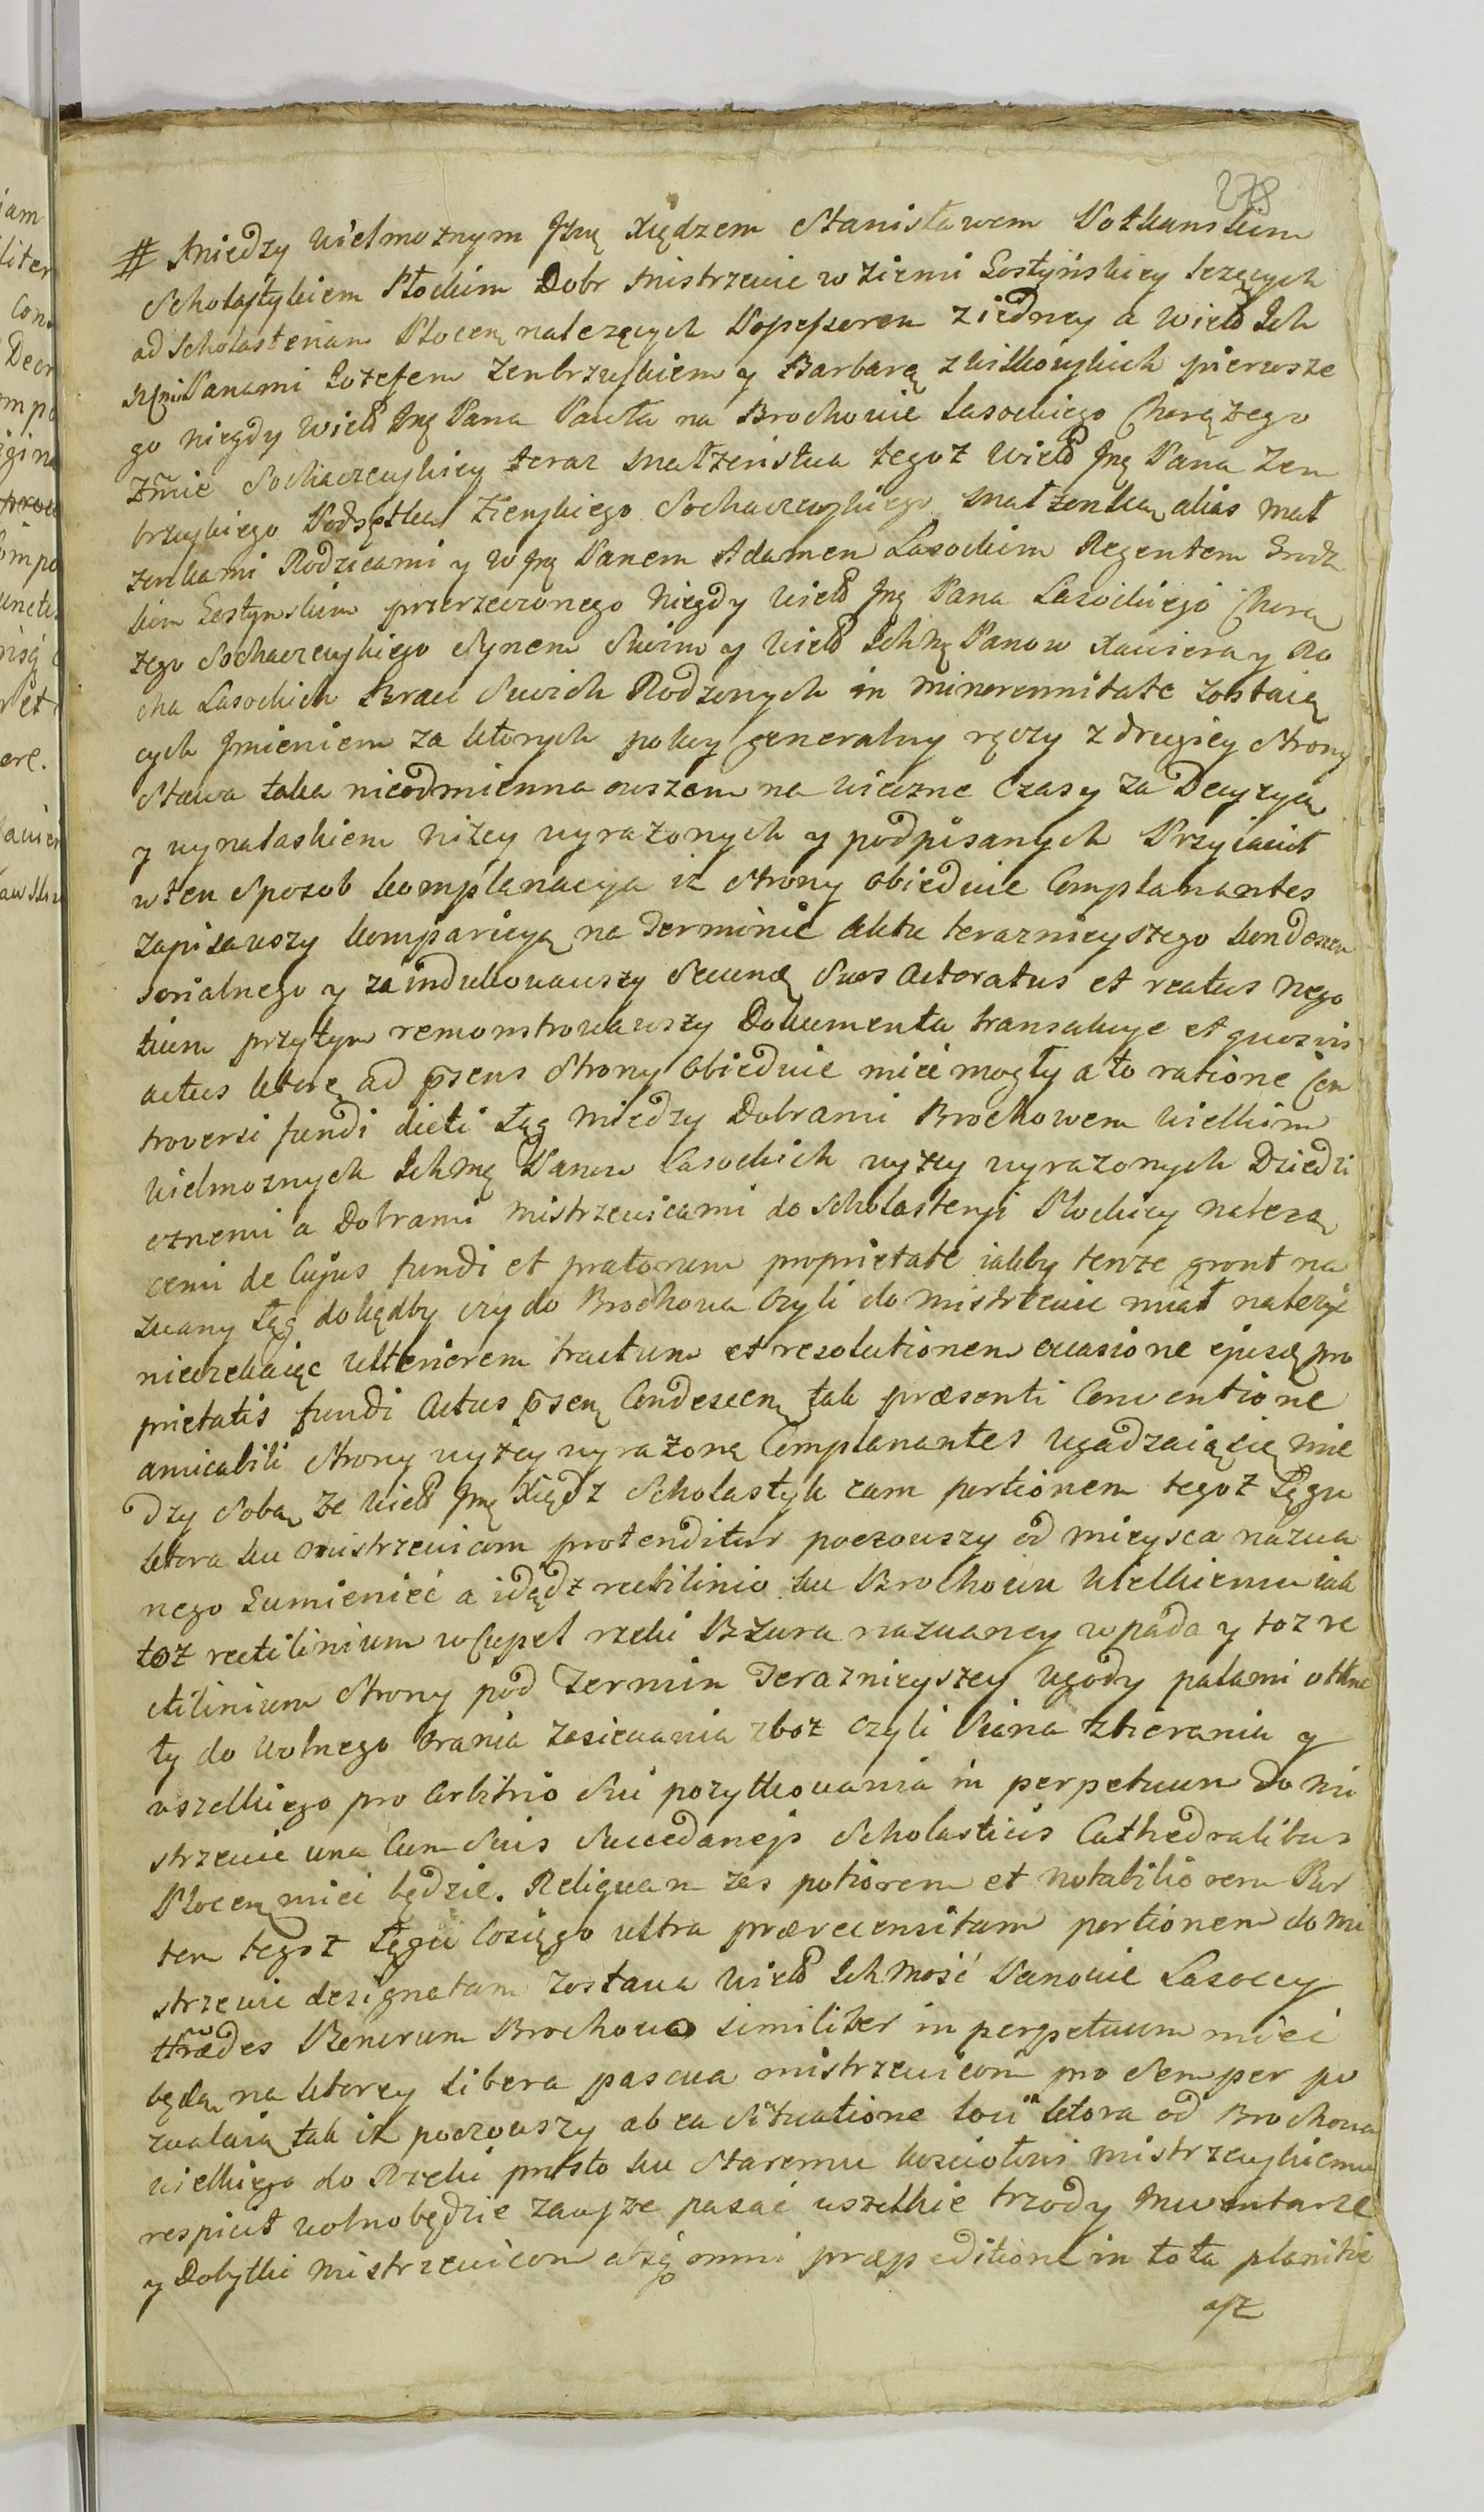 278
# Między Wielmożnym Jmę Xiędzem Stanisławem Potkanskim
Scholastykiem Płockim Dobr Mistrzewic w Ziemi Gostyńskiey leżących
ad Scholasteriam Plocen należących Possessorem z iedney a Wielo Ich
Mciami Panami Jozefem Zembrzuskiem y Barbarą z Wilkowskich pierwsze
go niegdy Wielo Jmę Pana Pawła na Brochowie Lasockiego Chorążego
Zmie Sochaczewskiey teraz małżeństwa tegoż Wielo Jmę Pana Zem
brzuskiego Podsętka Ziemskiego Sochaczewskiego małżonką alias mał
żonkami Rodzicami y W Jmę Panem Adamem Lasockim Regentem Grodz
kim Gostynskim przerzeczonego Niegdy Wielo Jmę Pana Lasockiego Chorą
żego Sochaczewskiego Synem Swoim y Wielo Ichmę Panow Xawiera y Ro
cha Lasockich Braci Swoich Rodzonych in minorennitate zostaią
cych Jmieniem za ktorych pokoy generalny ręczy z drugiey Strony
Stawa taka nieodmienna owszem na wieczne Czasy za Decyzyą
y wynalaskiem niżey wyrażonych y podpisanych Przyiacioł
w ten Sposob komplanacya iż Strony obiedwie Complanantes
zapisawszy komparicyą na Terminie Aktu teraznieyszego kondescen
sorialnego y zaindukowawszy Secund Suos Actoratus et reatus Nego
tium przytym remonstrowawszy Dokumenta transakcye et quosvis
actus ktore ad psens Strony obiedwie mieć mogły a to ratione Con
troversi fundi dicti Łęg między Dobrami Brochowem Wielkim
Wielmożnych Ichmę Panow Lasockich wyżey wyrażonych Dziedzi
cznemi a Dobrami Mistrzewicami do Scholasteryi Płockiey należą
cemi de Cujus fundi et pratorum proprietate iakby tenże gront na
zwany Łęg dokądby czy do Brochowa Czyli do Mistrzewic miał należyć
nieczekaiąc Ulteriorem tractum et resolutionem occasione ejusd pro
prietatis fundi Actus psen Condescen tak præsenti Conventione
amicabili Strony wyżey wyrażone Complanantes ugadzaią się mie
dzy Sobą że Wielo Jmę Xiądz Scholastyk eam portionem tegoż Łęgu
ktora ku Mistrzewicom protenditur począwszy od mieysca nazwa
nego Sumienieć a idądz rectilinio ku Brochowu Wielkiemu iak
toż rectilinium w Cypel rzeki Bzura nazwaney wpada y toż re
ctilinium Strony pod Termin Teraznieyszey Ugody palami otkne
ły do Wolnego orania zasiewania zboż czyli Siana zbierania y
wszelkiego pro Arbitrio Sui pożytkowania in perpetuum do Mi
strzewic una Cum Suis Succedaneis Scholasticis Cathedralibus
Plocen mieć będzie. Reliquam zas potiorem et notabiliorem Par
tem tegoż Łęgu Cosięgo ultra præreciensitam portionem do Mi
strzewic designatam zostawa Wielo Ichmość Panowie Lasoccy
Hrædes Bonorum Brochowo similiter in perpetuum mieć
będą na ktorey libera pascua Mistrzewicom pro semper po
zwalaią tak iż począwszy ab ea Situatione loci ktora od Brochowa
Wielkiego do Rzeki prosto ku Staremu kościołowi Mistrzewskiemu
respicit wolno będzie zawsze pasać wszelkie trzody Inwentarze
y Dobytki Mistrzewicom absq omni præpeditione in tota planitie
asz